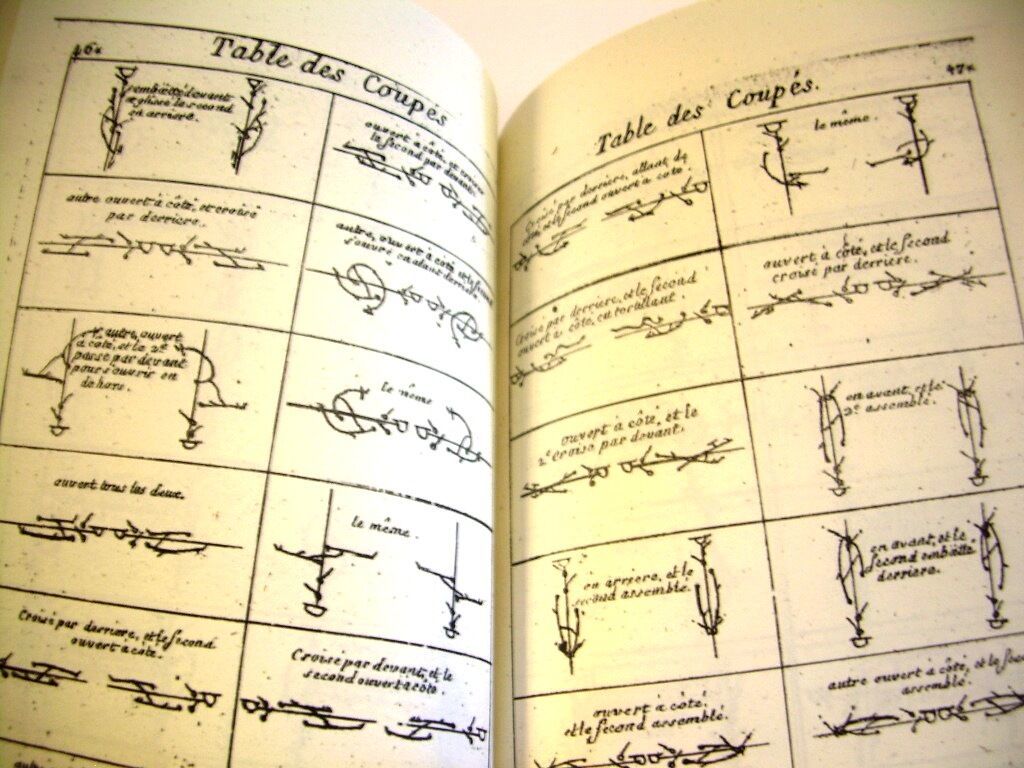 46.
Table des Coupés
emboëtté devant
et glissé le second
en arriere.
ouvert à côté, et croisé
le second par devant.
autre ouvert à côté, et croisé
par derriere.
autre, ouvert à côté, et le second
s'ouvre en alant derriere.
autre, ouvert
à côté, et le 2.e
passe par devant
pour s'ouvrir en
dehors.
le même
ouvert tous les deux.
le même.
Croisé par derriere, et le second
ouvert à côté.
Croisé par devant, et le
second ouvert à côté.
47.
Table des Coupés.
Croisé par derriere, allant de
côté, et le second ouvert à côté.
le même.
Croisé par derriere, et le second
ouvert à côté, en tortillant.
ouvert à côté, et le second
croisé par derriere.
ouvert à côté, et le
2.e croisé par devant.
en avant, et le
2.e assemblé.
en arriere, et le
second assemblé.
en avant, et le
second emboëtté
derriere.
ouvert à côté,
et le second assemblé.
autre ouvert à côté, et le second
assemblé.